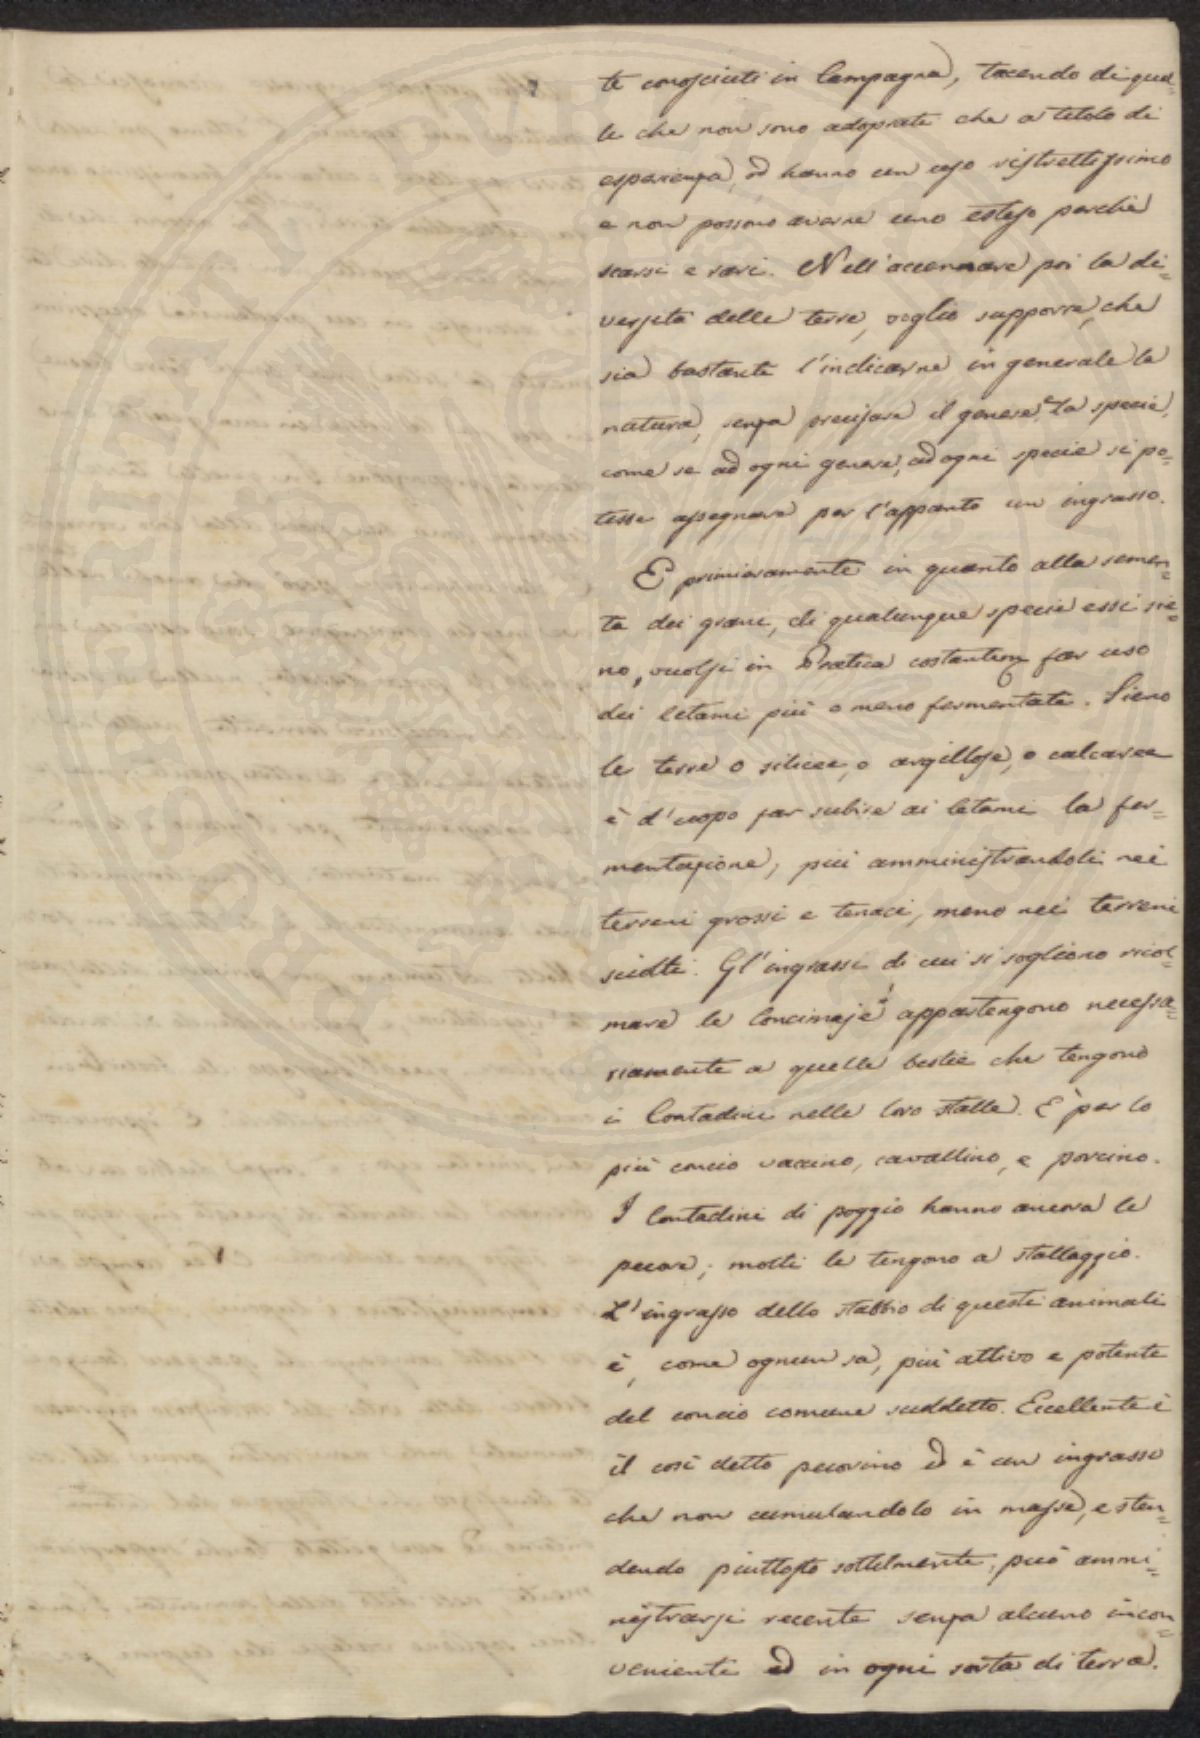 te conosciuti in Campagna), tacendo di quel=
le che non sono adoprate che a titolo di
esperienza, ed hanno un uso ristrettissimo
e non possono averne uno esteso perchè
scarsi e rari. Nell'accennare poi la di=
versità delle terre, voglio supporre, che
sia bastante l'indicarne in generale la
natura, senza precisare il genere e la specie,
come se ad ogni genere, ad ogni specie si po=
tesse assegnare per l'appunto un ingrasso.
E primieramente in quanto alla semen=
ta dei grani, di qualunque specie essi sie=
no, vuolsi in Pratica costantem. far uso
dei letami più o meno fermentati. Sieno
le terre o silicee, o argillose, o calcaree
è d'uopo far subire ai letami la fer=
mentazione, più amministrandoli nei
terreni grossi e tenaci, meno nei terreni
sciolti. Gl'ingrassi di cui si sogliono ricol=
mare le Concimaje appartengono necessa=
riamente a quelle bestie che tengono
i Contadini nelle loro stalle. E' per lo
più concio vaccino, cavallino, e porcino.
I Contadini di poggio hanno ancora le
pecore; molti le tengono a stallaggio.
L'ingrasso dello stabbio di questi animali
è, come ognun sa, più attivo e potente
del concio comune suddetto. Eccellente è
il così detto pecorino ed è un ingrasso
che non cumulandolo in masse, e sten=
dendo piuttosto sottilmente, può ammi=
nistrarsi recente senza alcuno incon=
veniente ed in ogni sorta di terra.